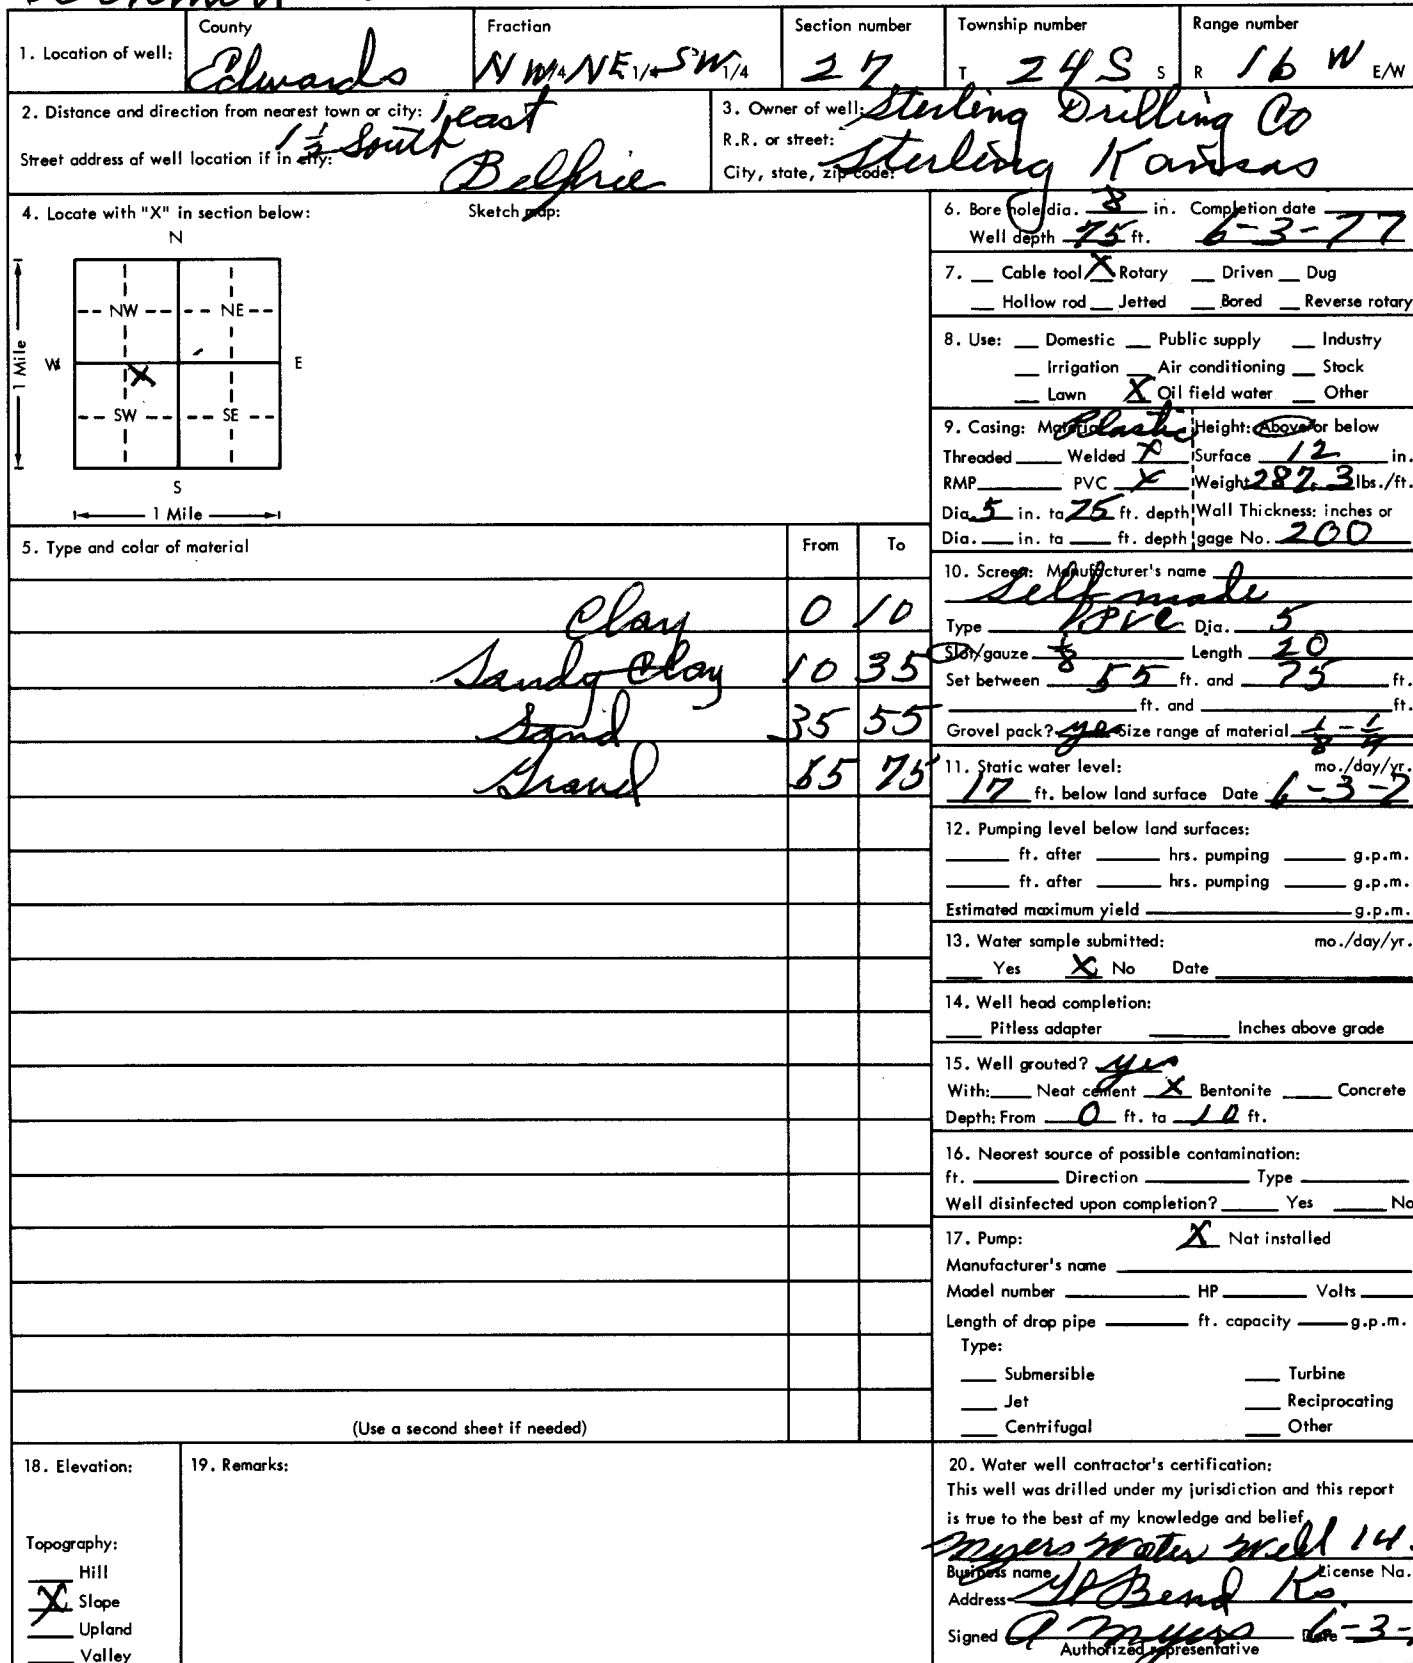 1. Location of well:
County
Edwards
Fraction
NW 1/4 NE 1/4 SW 1/4
Section number
27
Township number
T 24 S S
Range number
R 16 W E/W
2. Distance and direction from nearest town or city: 1 east
1 1/2 South
Street address of well location if in city:
3. Owner of well: Sterling Drilling Co
R.R. or street:
City, state, zip code: Sterling Kansas
4. Locate with "X" in section below:
Sketch map:
N
NW NE
W X E
SW SE
S
1 Mile
1 Mile
5. Type and color of material From To
Clay 0 10
Sandy Clay 10 35
Sand 35 55
Gravel 55 75
(Use a second sheet if needed)
6. Bore hole dia. 8 in. Completion date
Well depth 75 ft. 6-3-77
7. Cable tool X Rotary Driven Dug
Hollow rod Jetted Bored Reverse rotary
8. Use: Domestic Public supply Industry
Irrigation Air conditioning Stock
Lawn X Oil field water Other
9. Casing: Material Plastic Height: Above or below
Threaded Welded X Surface 12 in.
RMP PVC X Weight 287.3 lbs./ft.
Dia. 5 in. to 75 ft. depth Wall Thickness: inches or
Dia. in. to ft. depth gage No. 200
10. Screen: Manufacturer's name
Self made
Type PVC Dia. 5
Slot/gauze 1/8 Length 20
Set between 55 ft. and 75 ft.
ft. and ft.
Gravel pack? yes Size range of material 1/8 - 1/4
11. Static water level: mo./day/yr.
17 ft. below land surface Date 6-3-7
12. Pumping level below land surfaces:
ft. after hrs. pumping g.p.m.
ft. after hrs. pumping g.p.m.
Estimated maximum yield g.p.m.
13. Water sample submitted: mo./day/yr.
Yes X No Date
14. Well head completion:
Pitless adapter Inches above grade
15. Well grouted? yes
With: Neat cement X Bentonite Concrete
Depth: From 0 ft. to 10 ft.
16. Nearest source of possible contamination:
ft. Direction Type
Well disinfected upon completion? Yes No
17. Pump: X Not installed
Manufacturer's name
Model number HP Volts
Length of drop pipe ft. capacity g.p.m.
Type:
Submersible Turbine
Jet Reciprocating
Centrifugal Other
18. Elevation:
Topography:
Hill
X Slope
Upland
Valley
19. Remarks:
20. Water well contractor's certification:
This well was drilled under my jurisdiction and this report
is true to the best of my knowledge and belief
Myers Water Well 14
Business name License No.
Address Gt Bend Ks.
Signed A Myers Date 6-3-
Authorized representative